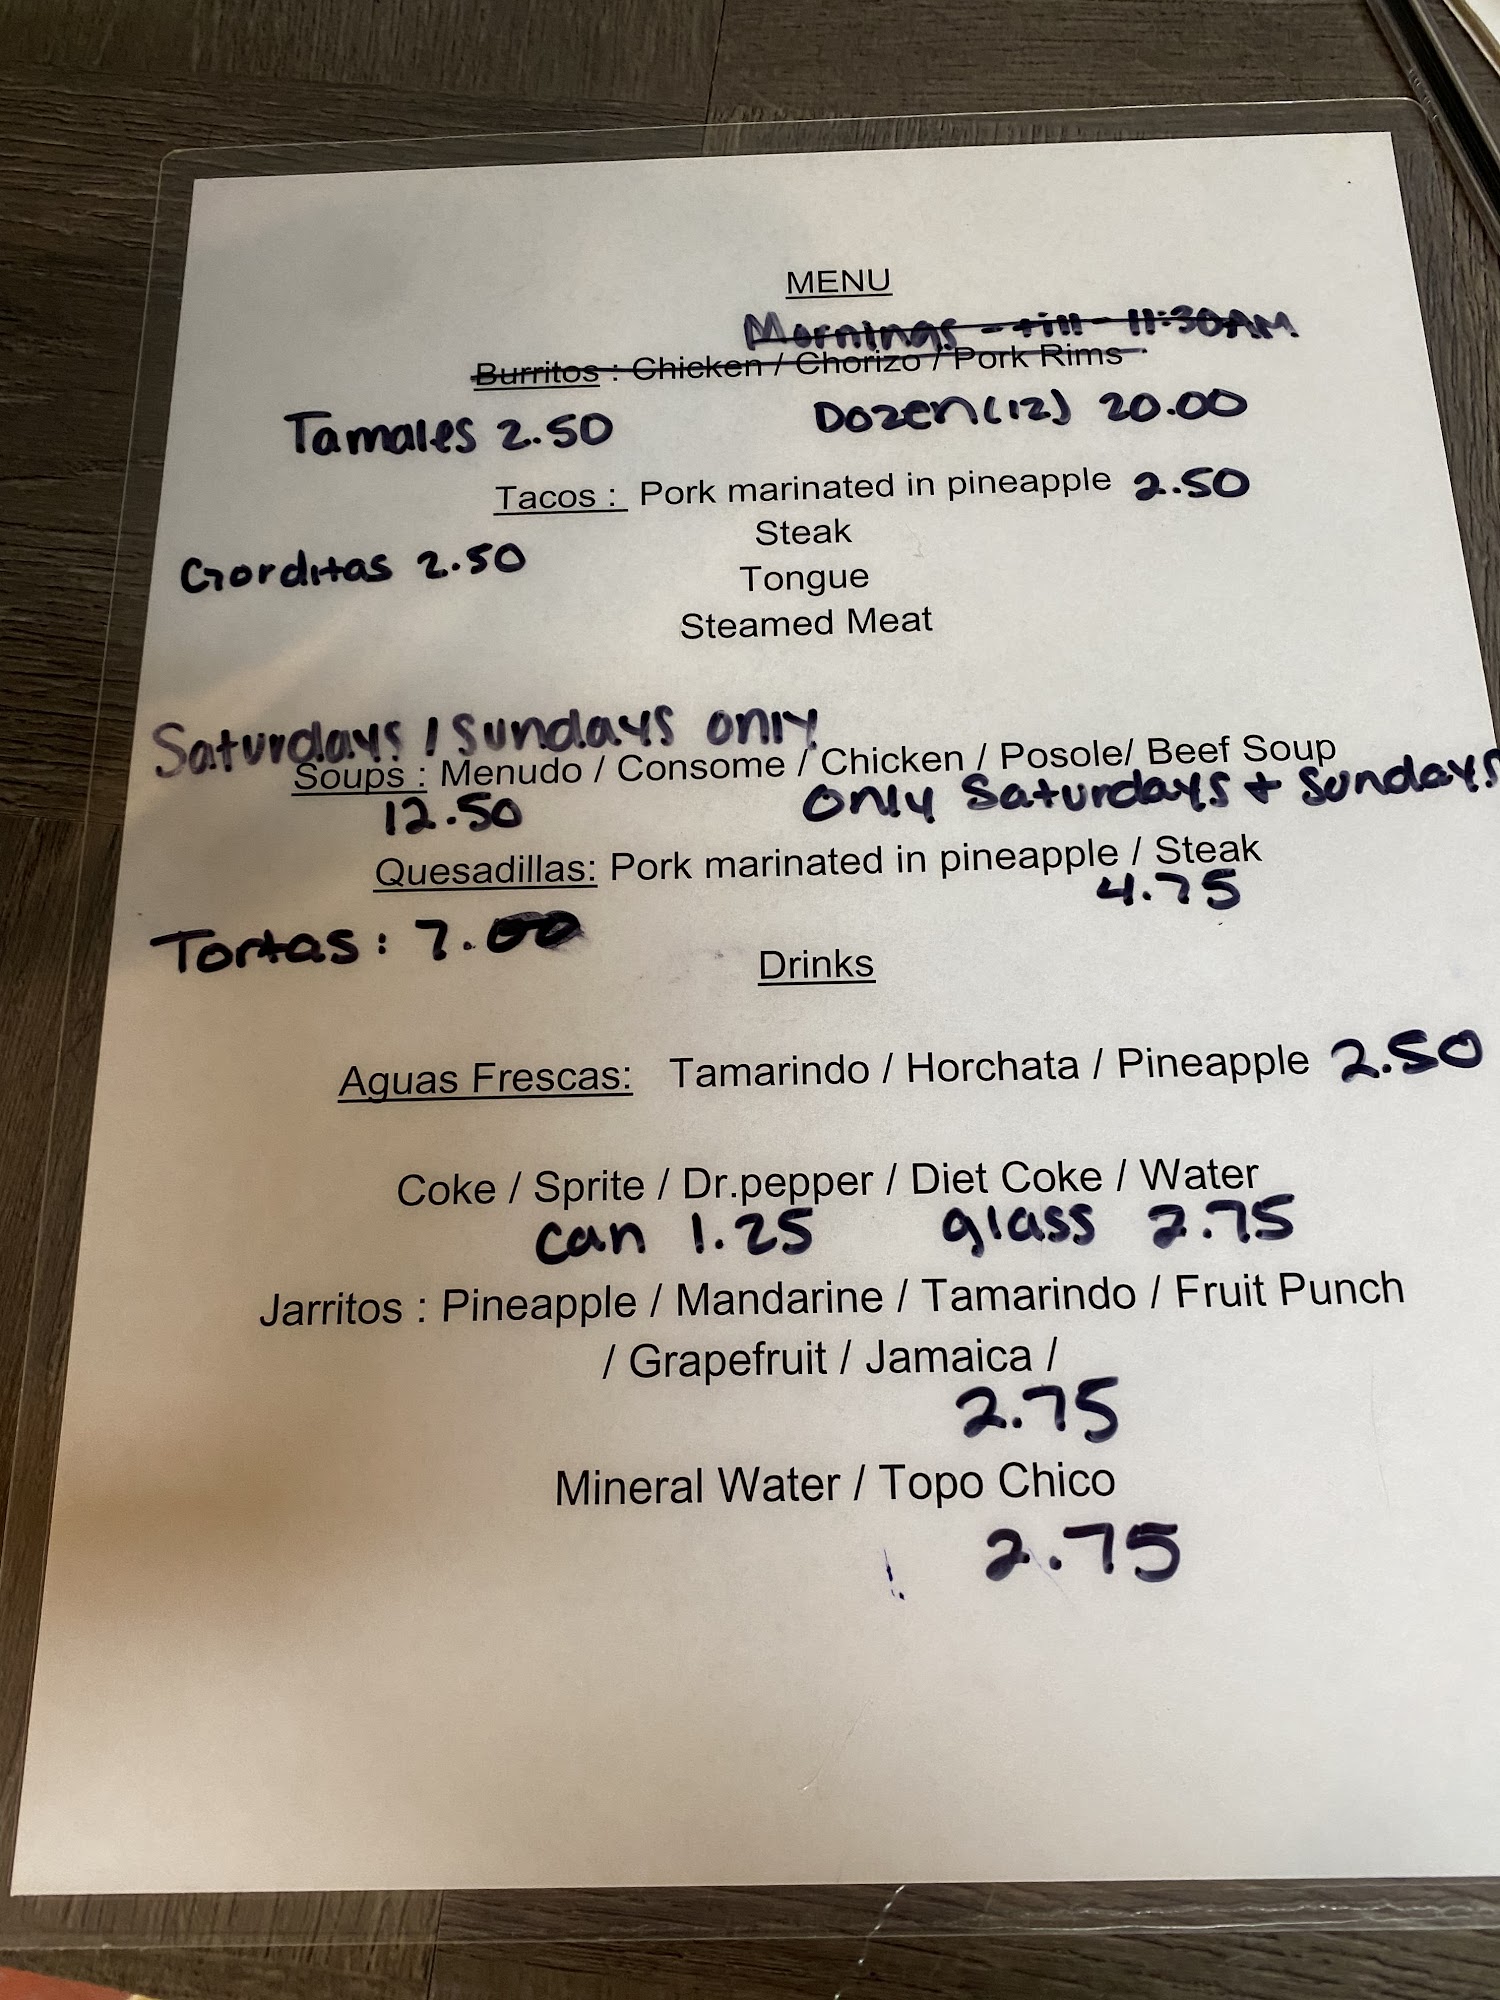 MENU
Mornings - till - 11:30AM
Burritos : Chicken / Chorizo / Pork Rims
Tamales 2.50 Dozen (12) 20.00
Tacos : Pork marinated in pineapple 2.50
Steak
Gorditas 2.50
Tongue
Steamed Meat
Saturdays / Sundays only
Soups : Menudo / Consome / Chicken / Posole/ Beef Soup
12.50 only Saturdays + Sundays
Quesadillas: Pork marinated in pineapple / Steak
4.75
Tortas: 7.00
Drinks
Aguas Frescas: Tamarindo / Horchata / Pineapple 2.50
Coke / Sprite / Dr.pepper / Diet Coke / Water
can 1.25 glass 2.75
Jarritos : Pineapple / Mandarine / Tamarindo / Fruit Punch
/ Grapefruit / Jamaica /
2.75
Mineral Water / Topo Chico
2.75